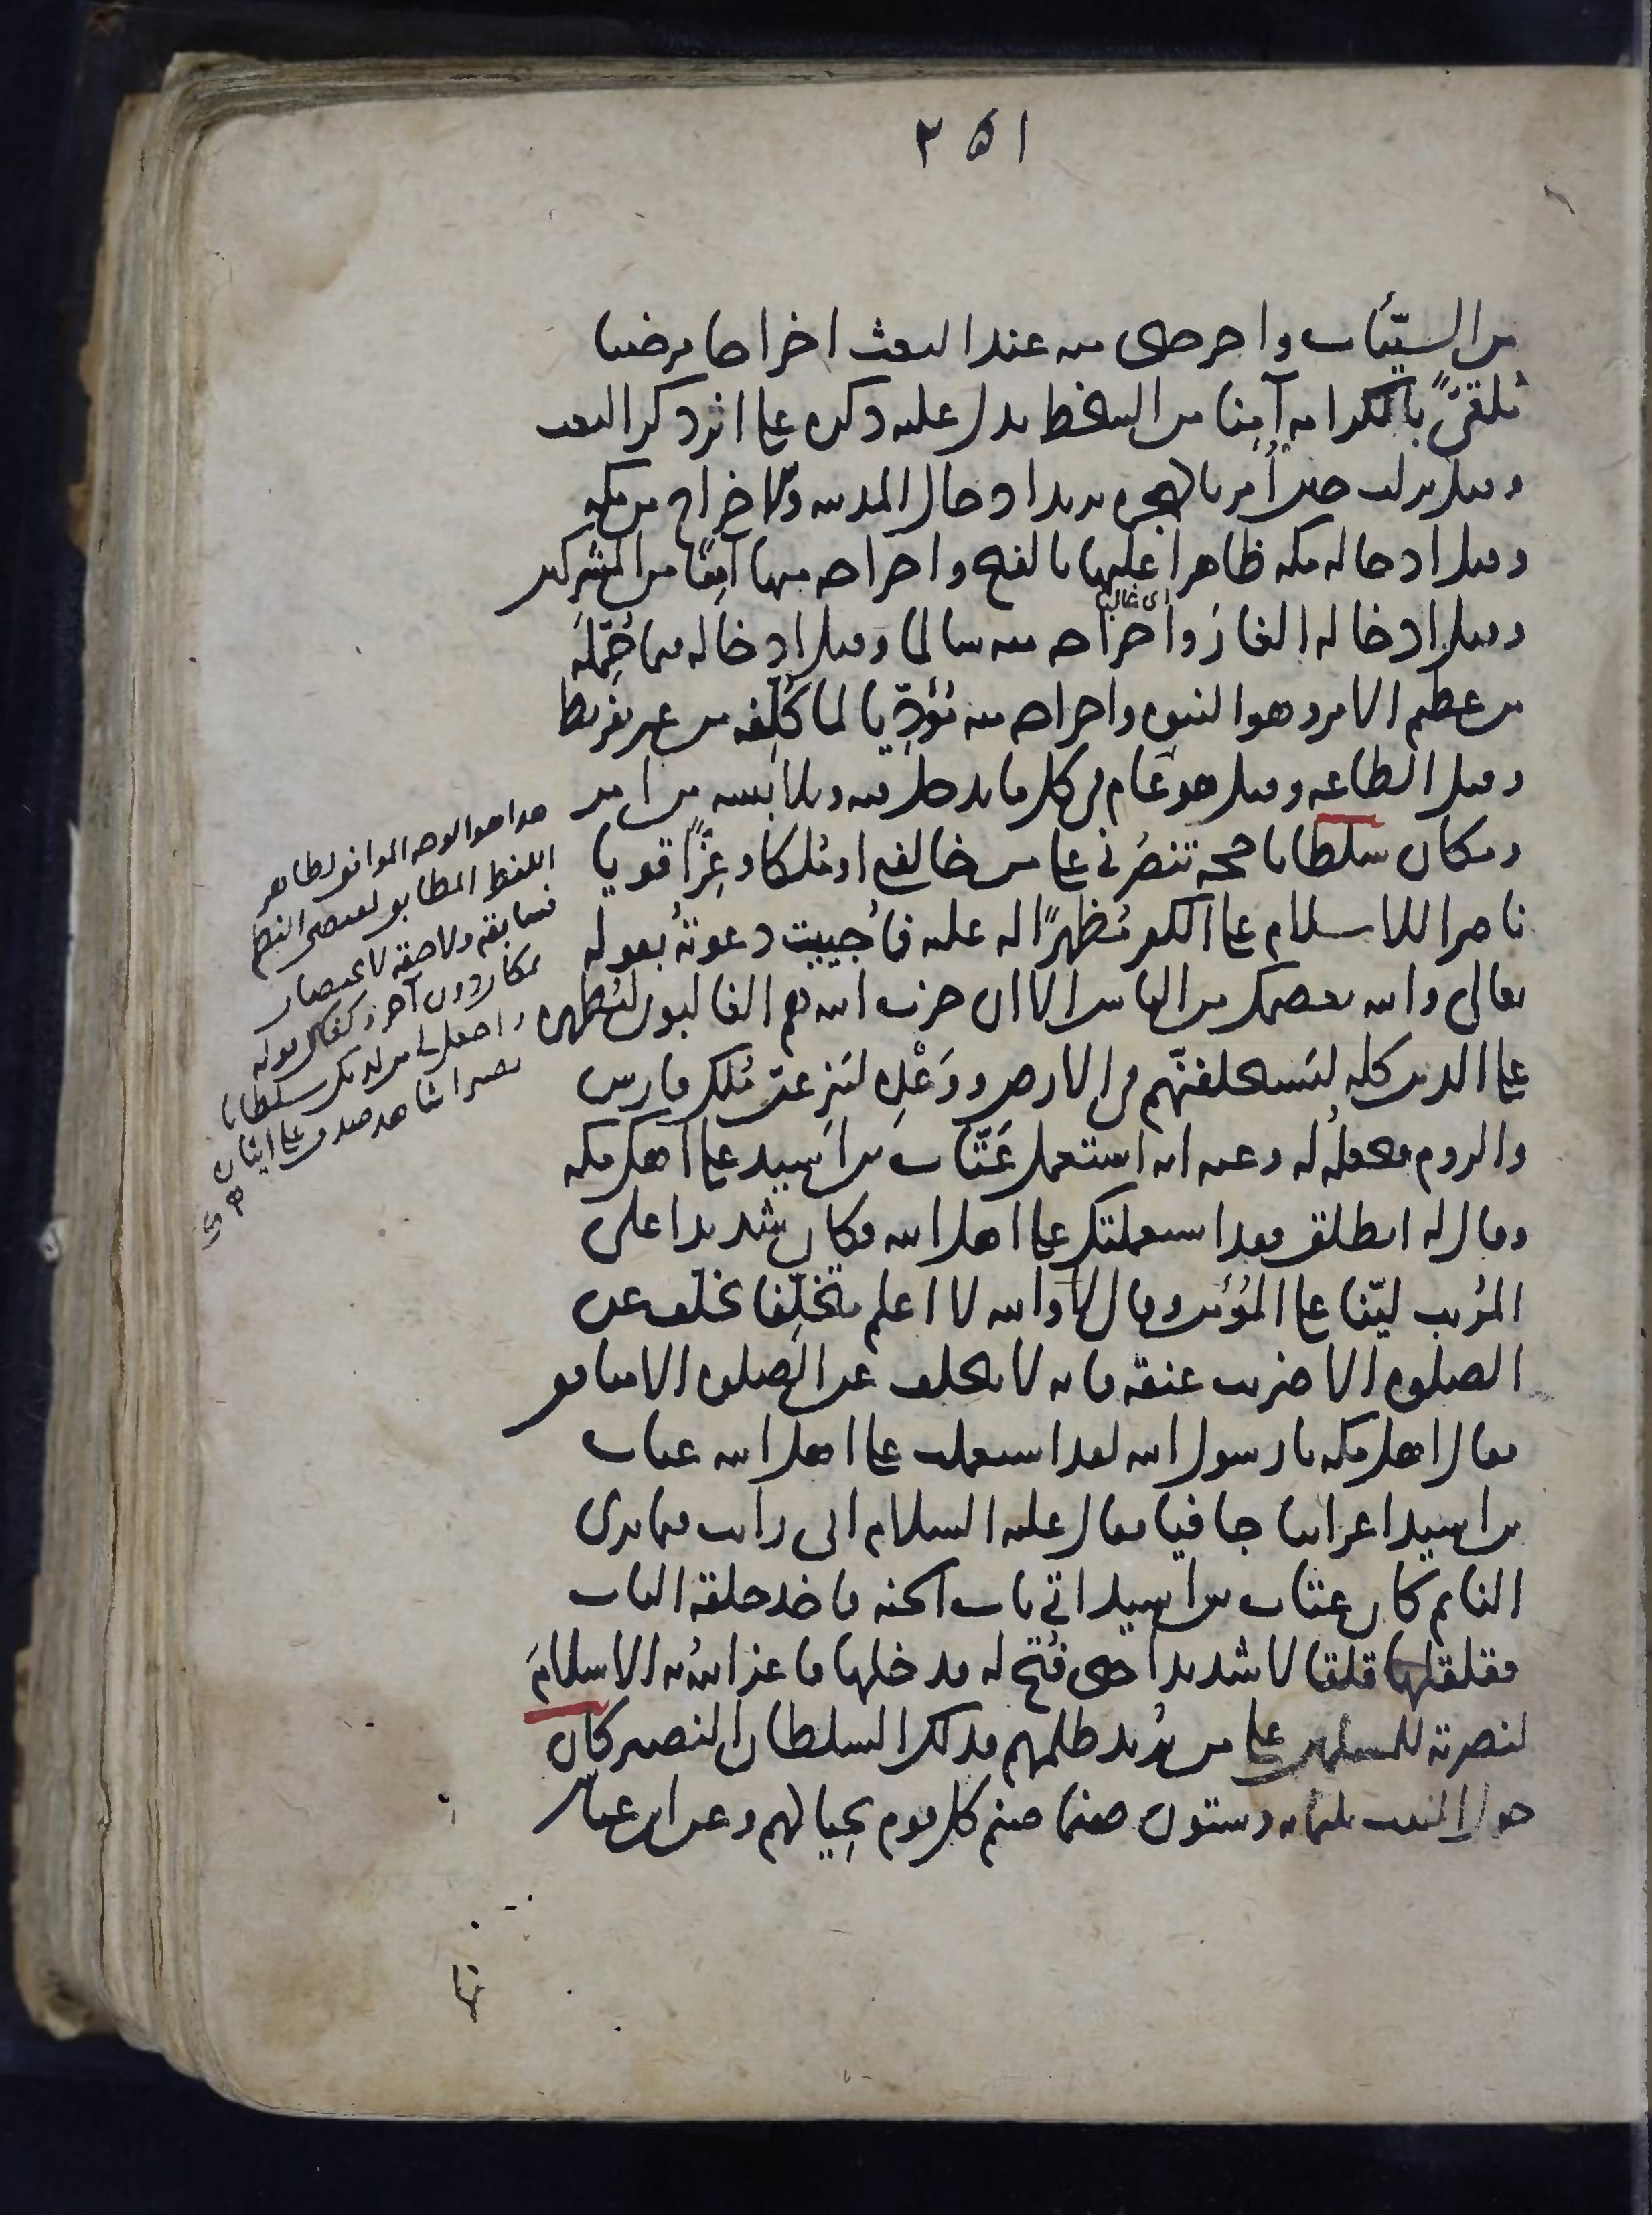 ٢٥١
من السيّئات واخرجنى منه عند البعث اخراجا مرضيا
مُلقىً بالكرامة آمِنا من السخط يدل عليه ذكره على اثر ذكر البعث
وقيل نزلت حين اُمر بالهجرة يريد ادخال المدينة والاخراج من مكة
وقيل ادخاله مكة ظاهرا عليها بالفتح واخراجه منها آمِنًا من المشركين
اى غالبا
وقيل ادخاله الغار واخراجه منه سالما وقيل ادخاله فيما حُمِّلَه
من عظيم الامر وهو النبوة واخراجه منه مُؤدِّيا لما كُلِّفه من غير تفريط
وقيل الطاعة وقيل هو عام فى كل ما يدخل فيه ويلابسه من امر
ومكان سلطانا حجة تنصُرنى على من خالفنى او مُلكا وعِزًّا قويا
ناصرا للاسلام على الكفر مُظهرًا له عليه فاُجيبت دعوتهُ بقوله
تعالى والله يعصمك من الناس الا ان حزب الله هم الغالبون ليُظهره
على الدين كله ليَستخلفنّهم فى الارض ووَعْدِه ليَنزِعنّ مُلك فارس
والروم فيجعلهُ له وعنه انه استعمل عَتّاب بن اَسِيد على اهل مكة
وقال له انطلق فقد استعملتك على اهل الله فكان شديدا على
المُريب ليّنا على المُؤمن وقال لا والله لا اعلم متخلِّفا تخلّف عن
الصلوة الا ضربت عنقه فانه لا يتخلف عن الصلوة الا منافق
فقال اهل مكة يا رسول الله لقد استعملت على اهل الله عتاب
بن اسيد اعرابيا جافيا فقال عليه السلام انى رايت فيما يرى
النايم كان عتاب بن اسيد اتى باب الجنة فاخذ حلقة الباب
فقلقلها قلقالا شديدا حتى فُتح له فدخلها فاعز اللهُ به الاسلامَ
لنصرته للمسلمين على من يُريد ظلمهم فذلك السلطان النصير كان
حول البيت ثلثمائة وستون صنما صنم كل قوم بحِيالهم وعن ابن عباس
هذا هو الوجه الموافق لظاهر
اللفظ المطابق لمقتضى النظم
فسابقه ولاحقه لا يختصان
بمكان دون آخر وكفاك قوله
واجعل لى من لدنك سلطانا
نصيرا شاهد صدق على ايثاره